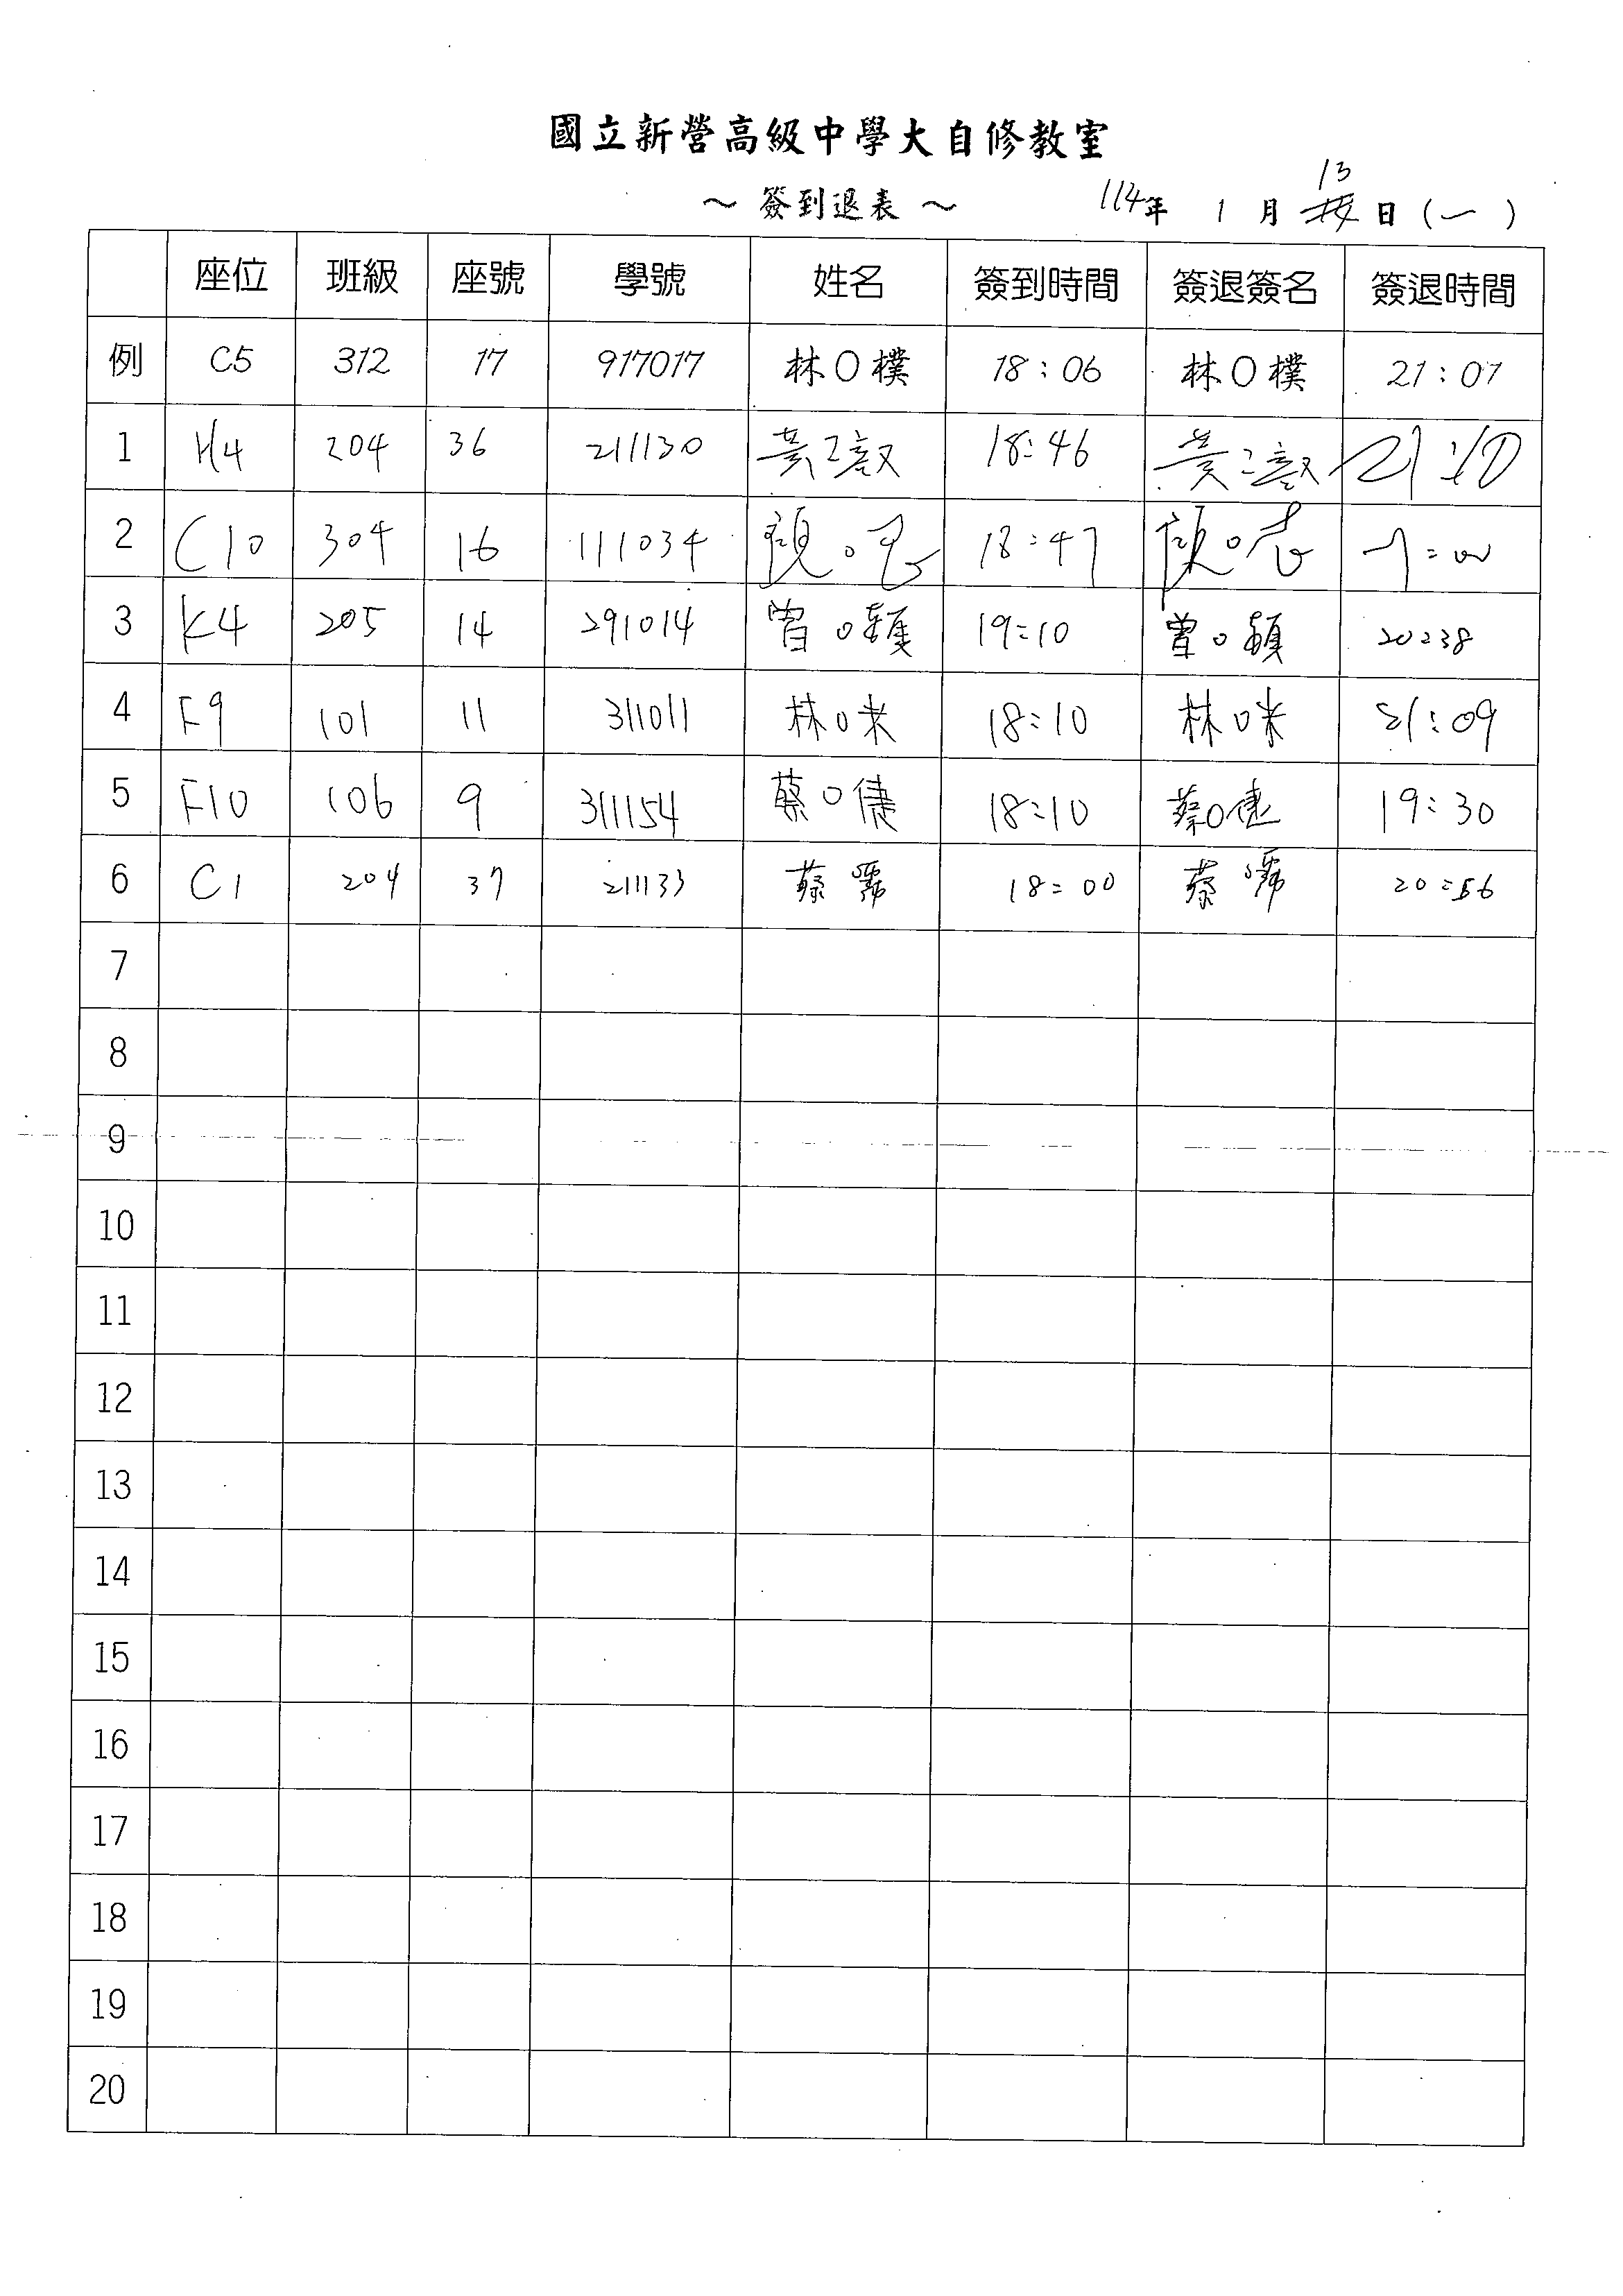 國立新營高級中學大自修教室
～ 簽到退表 ～ 114年 1 月 13 日 (一)
座位 班級 座號 學號 姓名 簽到時間 簽退簽名 簽退時間
例 C5 312 17 917017 林O樸 18:06 林O樸 21:07
1 H4 204 36 211130 黃 18:46 黃 21:10
2 C10 304 16 111034 18:47
3 K4 205 14 291014 曾O穎 19:10 曾O穎 20:38
4 F9 101 11 311011 林O米 18:10 林O米 21:09
5 F10 106 9 311154 蔡O倢 18:10 蔡O倢 19:30
6 C1 204 37 211133 蔡 18:00 蔡 20:56
7
8
9
10
11
12
13
14
15
16
17
18
19
20